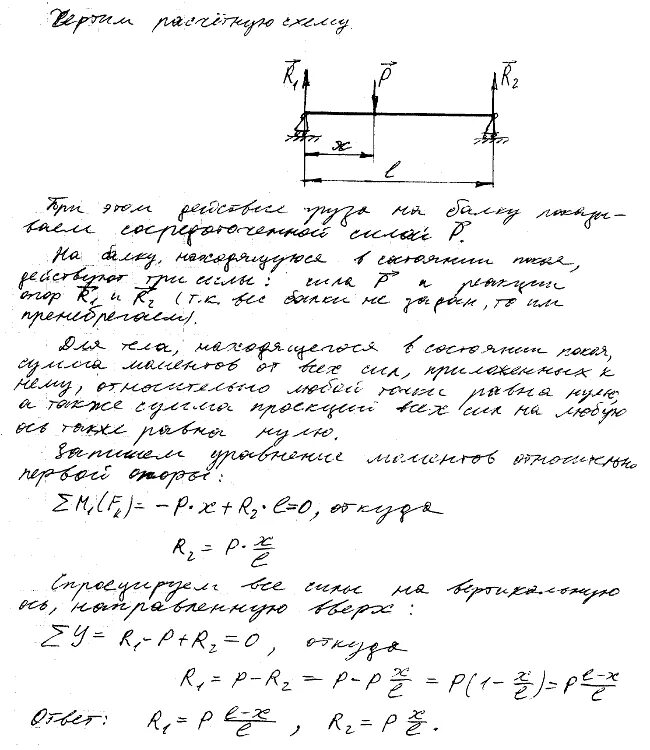 Чертим расчётную схему.
R⃗₁ P⃗ R⃗₂
x
l
При этом действие груза на балку показы-
ваем сосредоточенной силой P⃗.
На балку, находящуюся в состоянии покоя,
действуют три силы: сила P⃗ и реакции
опор R⃗₁ и R⃗₂ (т.к. вес балки не задан, то им
пренебрегаем).
Для тела, находящегося в состоянии покоя,
сумма моментов от всех сил, приложенных к
нему, относительно любой точки равна нулю,
а также сумма проекций всех сил на любую
ось также равна нулю.
Запишем уравнение моментов относительно
первой опоры:
ΣM₁(Fₖ) = -P·x + R₂·l = 0, откуда
R₂ = P·x/l
Спроецируем все силы на вертикальную
ось, направленную вверх:
ΣY = R₁ - P + R₂ = 0, откуда
R₁ = P - R₂ = P - P x/l = P(1 - x/l) = P (l-x)/l
Ответ: R₁ = P (l-x)/l, R₂ = P x/l.